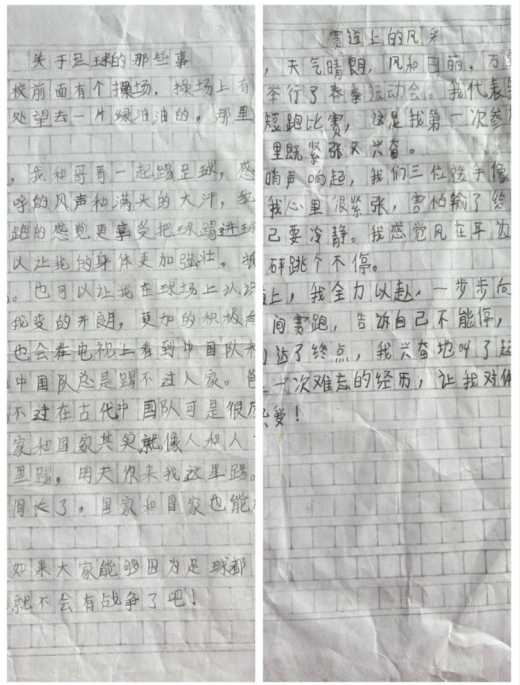 关于足球的那些事
校前面有个操场，操场上有
处望去一片绿油油的。那里
，我和哥哥一起踢足球，感
呼的风声和满头的大汗，
跑的感觉更享受把球踢进球
以让我的身体更加强壮。
。也可以让我在球场上认识
我变的开朗，更加的积极
也会在电视上看到中国队和
中国队总是踢不过人家。
不过在古代中国队可是很厉
家和国家其实就像人和人
里踢，明天你来我这里踢。
间长了。国家和国家也能
如果大家能够因为足球都
就不会有战争了吧！
赛道上的风采
，天气晴朗，风和日丽。万
举行了春季运动会。我代表
短跑比赛，这是我第一次参
里既紧张又兴奋。
哨声响起，我们三位选手像
我心里很紧张，害怕输了
己要冷静。我感觉风在耳边
砰跳个不停。
上，我全力以赴，一步步向
间赛跑，告诉自己不能停，
达了终点，我兴奋地叫了起
一次难忘的经历，让我对体
爱！